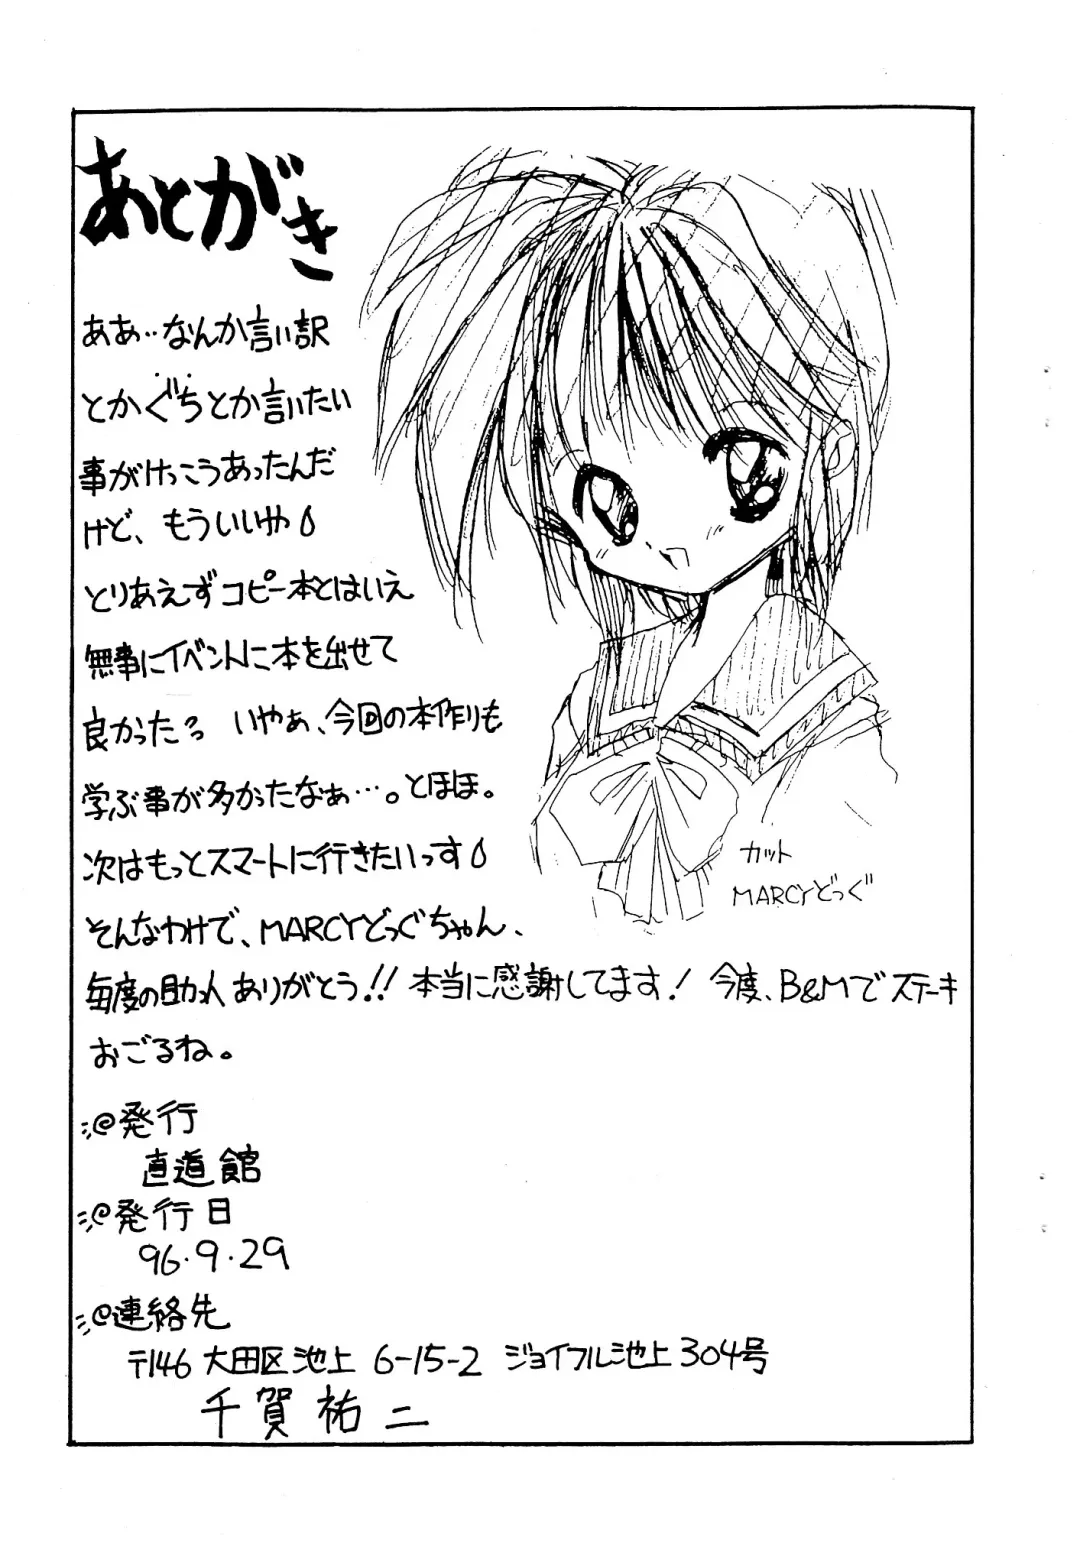 あとがき
ああ‥なんか言い訳
とかぐちとか言いたい
事がけっこうあったんだ
けど、もういいや
とりあえずコピー本とはいえ
無事にイベントに本を出せて
良かった? いやぁ、今回の本作りも
学ぶ事が多かったなぁ…。とほほ。
次はもっとスマートに行きたいっす
そんなわけで、MARCYどっぐちゃん、
毎度の助人ありがとう!! 本当に感謝してます! 今度、B&Mでステーキ
おごるね。
カット
MARCYどっぐ
@発行
直道館
@発行日
96・9・29
@連絡先
〒146 大田区池上 6-15-2 ジョイフル池上304号
千賀祐二